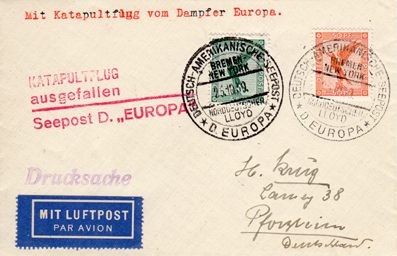 Mit Katapultflug vom Dampfer Europa.
KATAPULTFLUG
ausgefallen
Seepost D. „EUROPA"
DEUTSCH-AMERIKANISCHE SEEPOST
BREMEN
NEW YORK
NORDDEUTSCHER
LLOYD
* D. EUROPA *
DEUTSCH-AMERIKANISCHE SEEPOST
BREMEN
NEW YORK
NORDDEUTSCHER
LLOYD
* D. EUROPA *
Drucksache
MIT LUFTPOST
PAR AVION
H. Krug
38
Pforzheim
Deutschland.